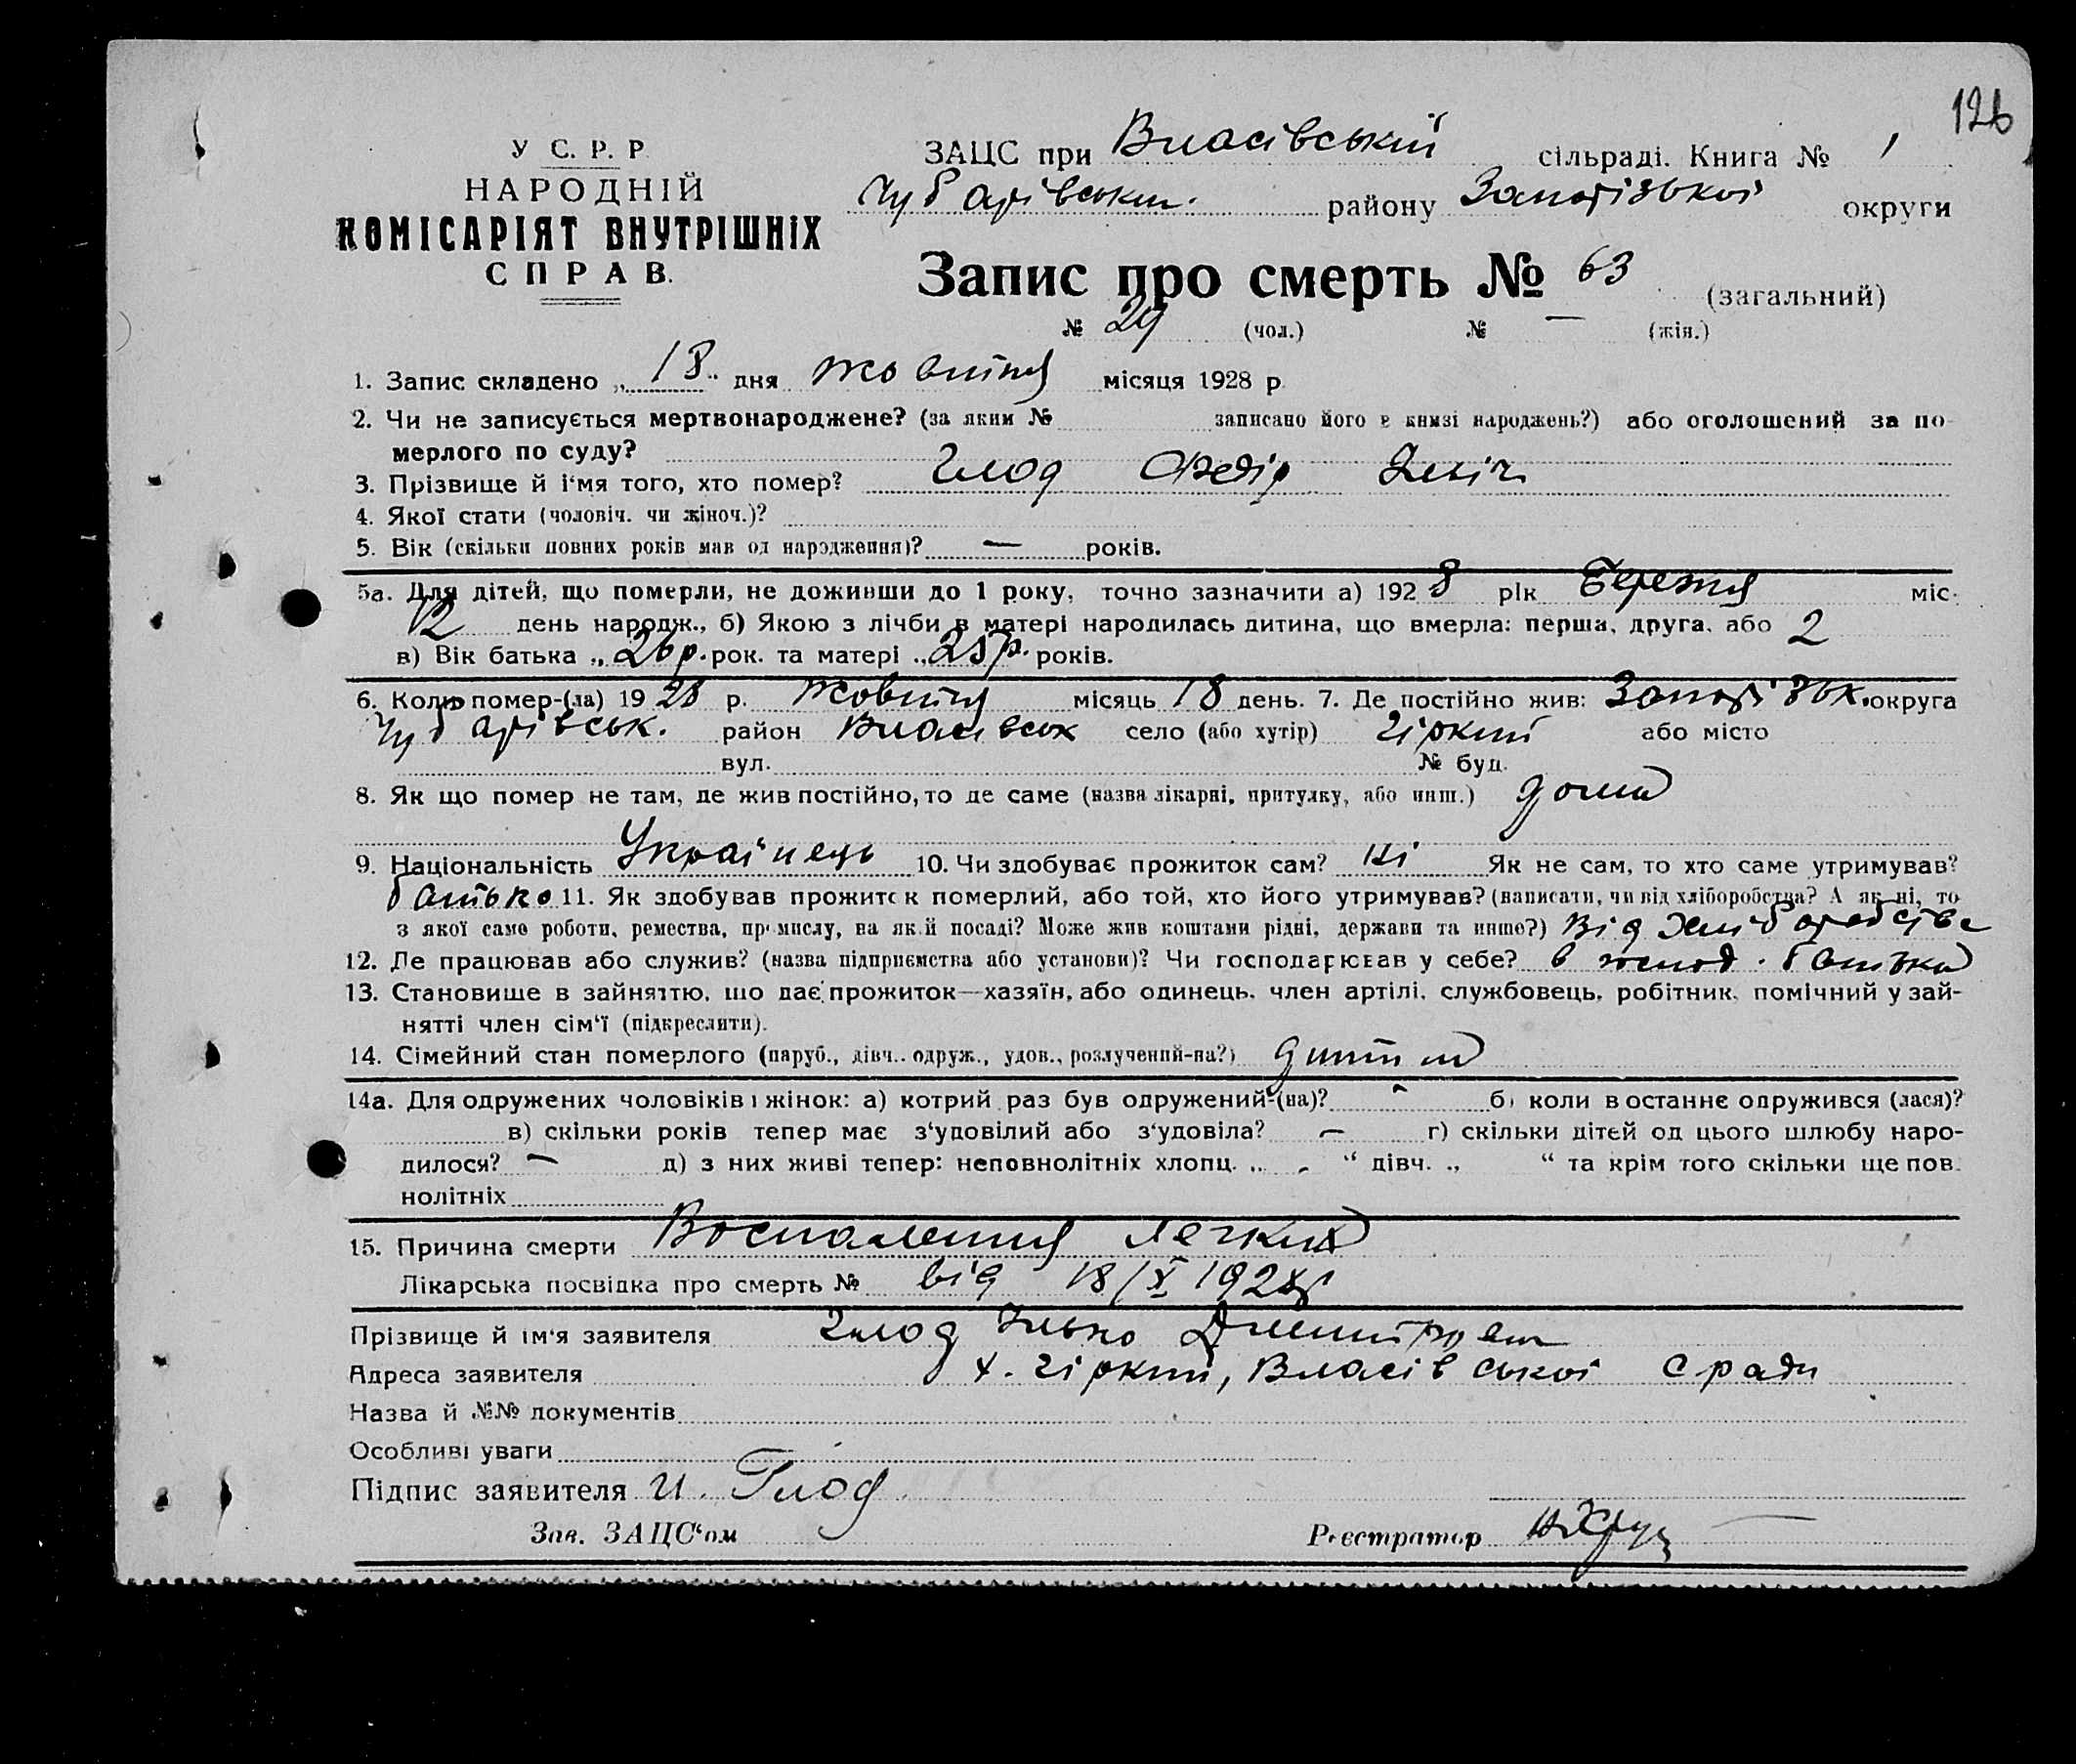 126
У С. Р. Р
НАРОДНІЙ
КОМІСАРІЯТ ВНУТРІШНІХ
СПРАВ.
ЗАЦС при Власівській сільраді. Книга № 1
Чубарівськ. району Запорізької округи
Запис про смерть № 63 (загальний)
№ 29 (чол.) № — (жін.)
1. Запис складено „ 18 " дня жовтня місяця 1928 р
2. Чи не записується мертвонароджене? (за яким № записано його в книзі народжень?) або оголошений за по-
мерлого по суду?
3. Прізвище й і'мя того, хто помер? Глод Федір Ілліч
4. Якої стати (чоловіч. чи жіноч.)?
5. Вік (скільки повних років мав од народження)? — років.
5а. Для дітей, що померли, не доживши до 1 року, точно зазначити а) 1928 рік Березня міс.
12 день народж., б) Якою з лічби в матері народилась дитина, що вмерла: перша, друга, або 2
в) Вік батька „ 26 р. рок. та матері „ 25 р. років.
6. Коли помер-(ла) 1928 р. жовтня місяць 18 день. 7. Де постійно жив: Запорізьк. округа
Чубарівськ. район Власівськ село (або хутір) Гіркий або місто
вул. № буд.
8. Як що помер не там, де жив постійно, то де саме (назва лікарні, притулку, або инш.) дома
9. Національність Українець 10. Чи здобуває прожиток сам? ні Як не сам, то хто саме утримував?
батько 11. Як здобував прожиток померлий, або той, хто його утримував? (написати, чи від хліборобства? А як ні, то
з якої само роботи, ремества, промислу, на якій посаді? Може жив коштами рідні, держави та инше?) Від хліборобства
12. Де працював або служив? (назва підприємства або установи)? Чи господарював у себе? в господ. батька
13. Становище в зайняттю, що дає прожиток—хазяїн, або одинець, член артілі, службовець, робітник, помічний у зай-
нятті член сім'ї (підкреслити).
14. Сімейний стан померлого (паруб., дівч.. одруж., удов., розлучений-на?) дитина
14а. Для одружених чоловіків і жінок: а) котрий раз був одружений-(на)? - б) коли востаннє одружився (лася)?
в) скільки років тепер має з'удовілий або з'удовіла? — г) скільки дітей од цього шлюбу наро-
дилося? — д) з них живі тепер: неповнолітніх хлопц. „ - " дівч. „ " та крім того скільки ще пов.
нолітніх
15. Причина смерти Воспаления легких
Лікарська посвідка про смерть № від 18/X 1928 р
Прізвище й ім'я заявителя Глод Ілько
Адреса заявителя х. Гіркий, Власівської с ради
Назва й №№ документів
Особливі уваги
Підпис заявителя И. Глод
Зав. ЗАЦС'ом Реєстратор